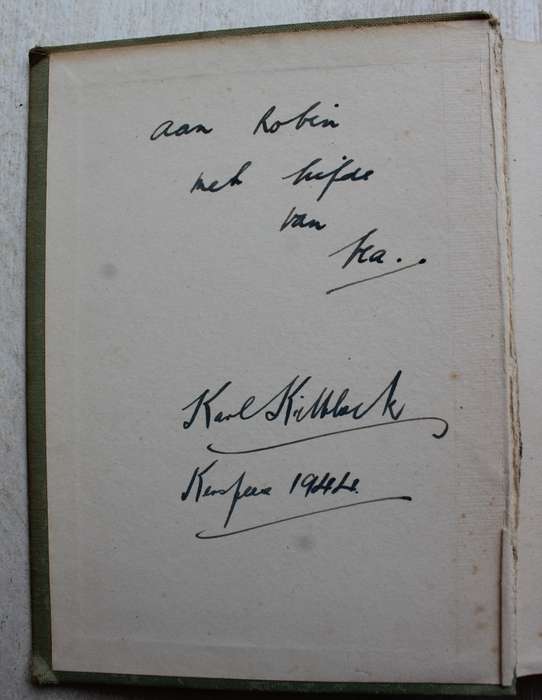 aan Robin
met liefde
van
Karl Kilblock
Kersfees 1944.